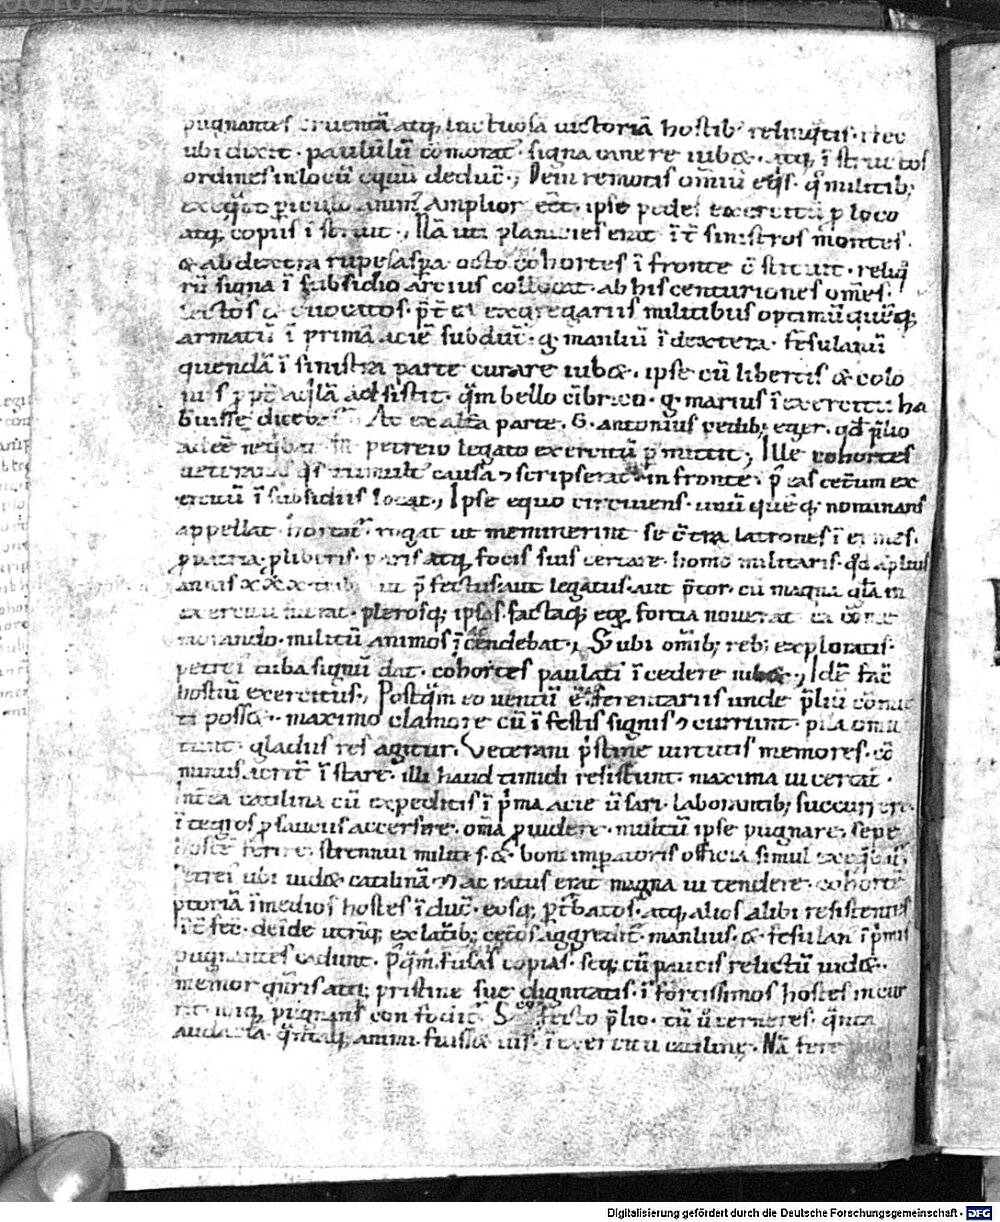 pugnantes cruentā atq; luctuosā uictoriā hostib; relinq̄tis. Hec
ubi dixit. paululū cōmorat᷑ signa canere iubet. atq; īstructos
ordines in locū equū deduc̄. Dein remotis omniū eq̄s. q̊ militib;
exeq̄to periculo animus Amplior eēt. ipse pedes exercitū p̄ loco
atq; copiis īstruit. Nā uti planicies erat īt̄ sinistros montes.
& ab dextra rupes asp̄a. octo cohortes ī fronte c̄stituit. reliq̊
rū signa ī subsidio arcius collocat. ab his centuriones om̄es
lectos & euocatos. p̄t̄ex gregariis militibus optimū quēq;
armatū ī primā aciē subduc̄. G. manliū ī dextera. fesulanū
quendā ī sinistra parte curare iubet. ipse cū libertis & colo
nis p̱pt̄ aq̊lā adsistit. q̄m bello cībrico. G. marius ī exercitu ha
buisse dicebat᷑ At ex alt̄a parte. G. antonius pedib; eger. qd̄ p̄lio
adeē petreio legato exercitū p̄mittit; Ille cohortes
ueteranas q̊s tumult᷑ causa ɔscripserat in fronte. p̄ eas cet̄um ex
ercitū ī subsidiis locat. Ipse equo circuiens. unū quēq; nominans
appellat hortat᷑ rogat ut meminerint se c̄tra latrones īermes.
p̱ patria. p̱ liberis. p̱ aris atq; focis suis certare. homo militaris. qd̄ aplius
annis xxx trib; p̄fectus aut legatus. aut p̄tor. cū magna gl̄a in
exercitu fuerat. plerosq; ipsos. factaq; eoꝝ fortia nouerat ea cōme
morando. militū animos īcendebat. S ubi omīb; reb; exploratis.
petreī tuba signū dat. cohortes paulatī īcedere iubet; Idē fac̄
hostiū exercitus. Postq̄m eo uentū ē. a ferentariis unde p̄liū cōmit
ti posset. maximo clamore cū īfestis signis ɔcurrunt. pila omit
tunt. gladiis res agitur. Veterani p̄stine uirtutis memores. cō
minus acrit̄ īstare. illi haud timidi resistunt. maxima ui certat᷑.
Īt̄ea catilina cū expeditis ī p̄ma acie ūsari. laborantib; succurrere.
ītegros p̱ sauciis accersere. om̄a p̱uidere. multū ipse pugnare. sepe
hostē ferire. strennui militis. & boni imperatoris officia simul exeq̄bat᷑.
Petreī ubi uidet catilinā ɔt̄ ac ratus erat magna ui tendere. cohortē
p̄toriā ī medios hostes īduc̄. eosq; p̄t̄batos. atq; alios alibi resistentes
īt̄fec̄. deīde utriq; ex lat̄ib; cet̄os aggredit᷑. manlius. & fesulan̄ ī p̄mis
pugnantes cadunt. Pq̄m. fusas copias. seq; cū paucis relictū uidet.
memor gn̄ris atq; pristine sue dignitatis. ī fortissimos hostes incur
rit. ibiq; pugnans confodit᷑. S confecto p̄lio. tū ūcerneres. q̄nta
audacia. q̄ntaq; animi. fuisset uis. ī exercitu catiline. Nā fere